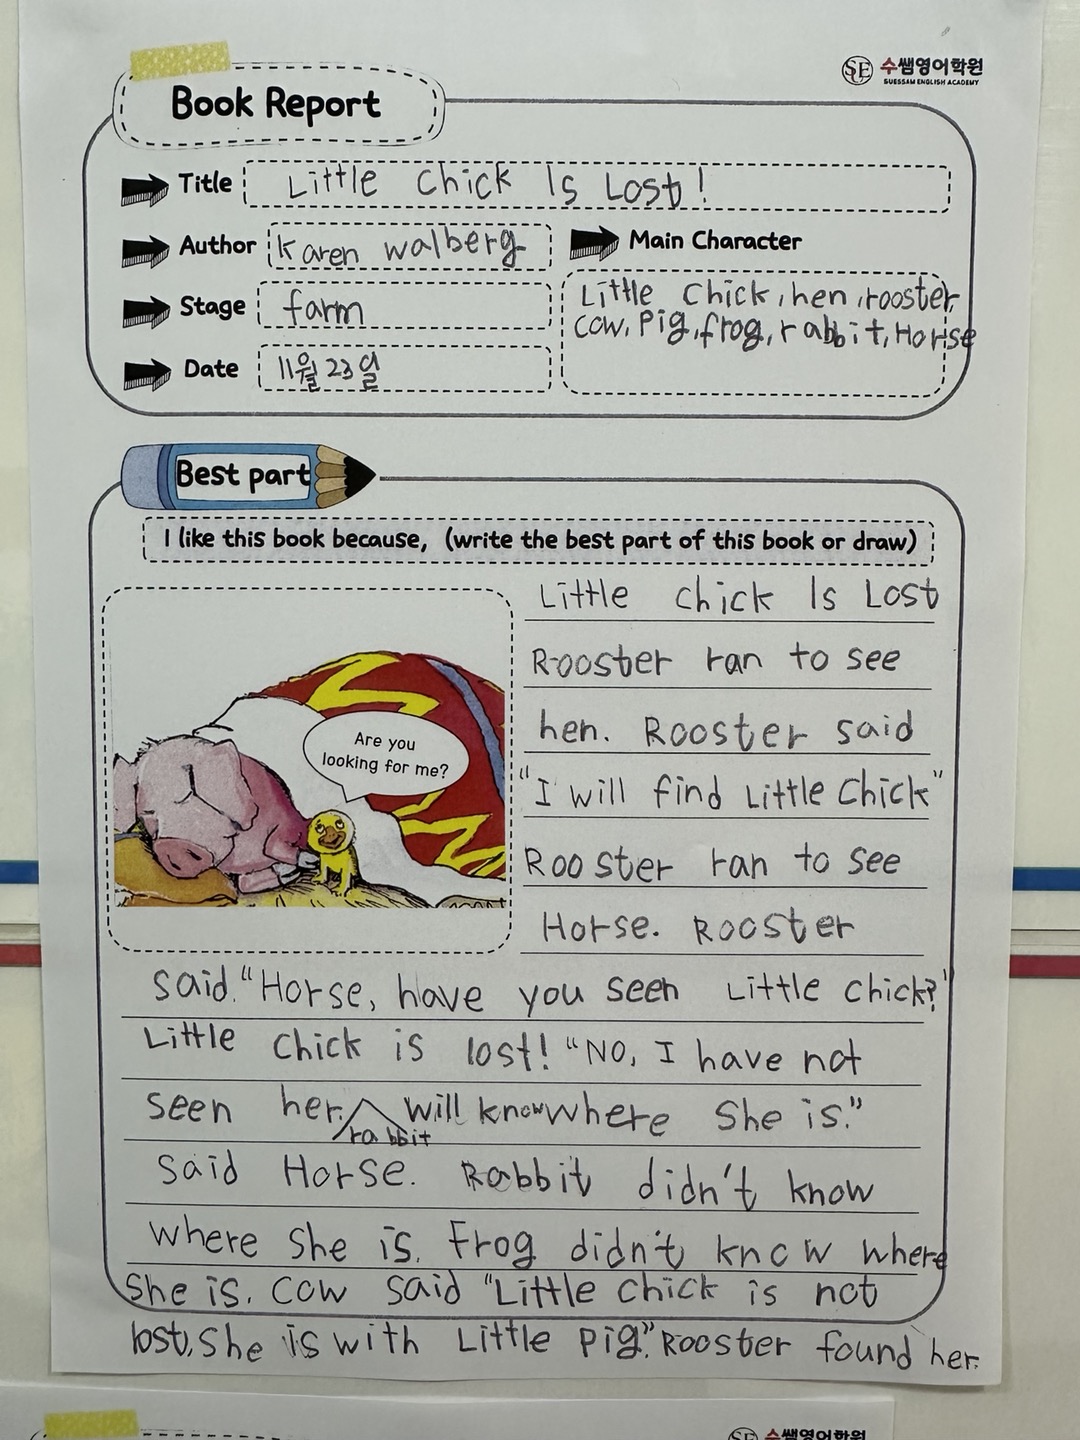 SUE
수쌤영어학원
SUESSAM ENGLISH ACADEMY
Book Report
Title Little Chick Is Lost!
Author Karen walberg
Main Character
Little Chick, hen, rooster,
Cow, Pig, frog, rabbit, Horse
Stage farm
Date 11월 23일
Best part
I like this book because, (write the best part of this book or draw)
Are you
looking for me?
Little Chick Is Lost
Rooster ran to see
hen. Rooster said
"I will find Little Chick"
Rooster ran to see
Horse. Rooster
said. "Horse, have you seen Little Chick?"
Little Chick is lost! "No, I have not
seen her. rabbit will know where She is."
said Horse. Rabbit didn't know
where She is. Frog didn't know where
She is. Cow said "Little Chick is not
lost, She is with Little Pig." Rooster found her.
수쌤영어학원